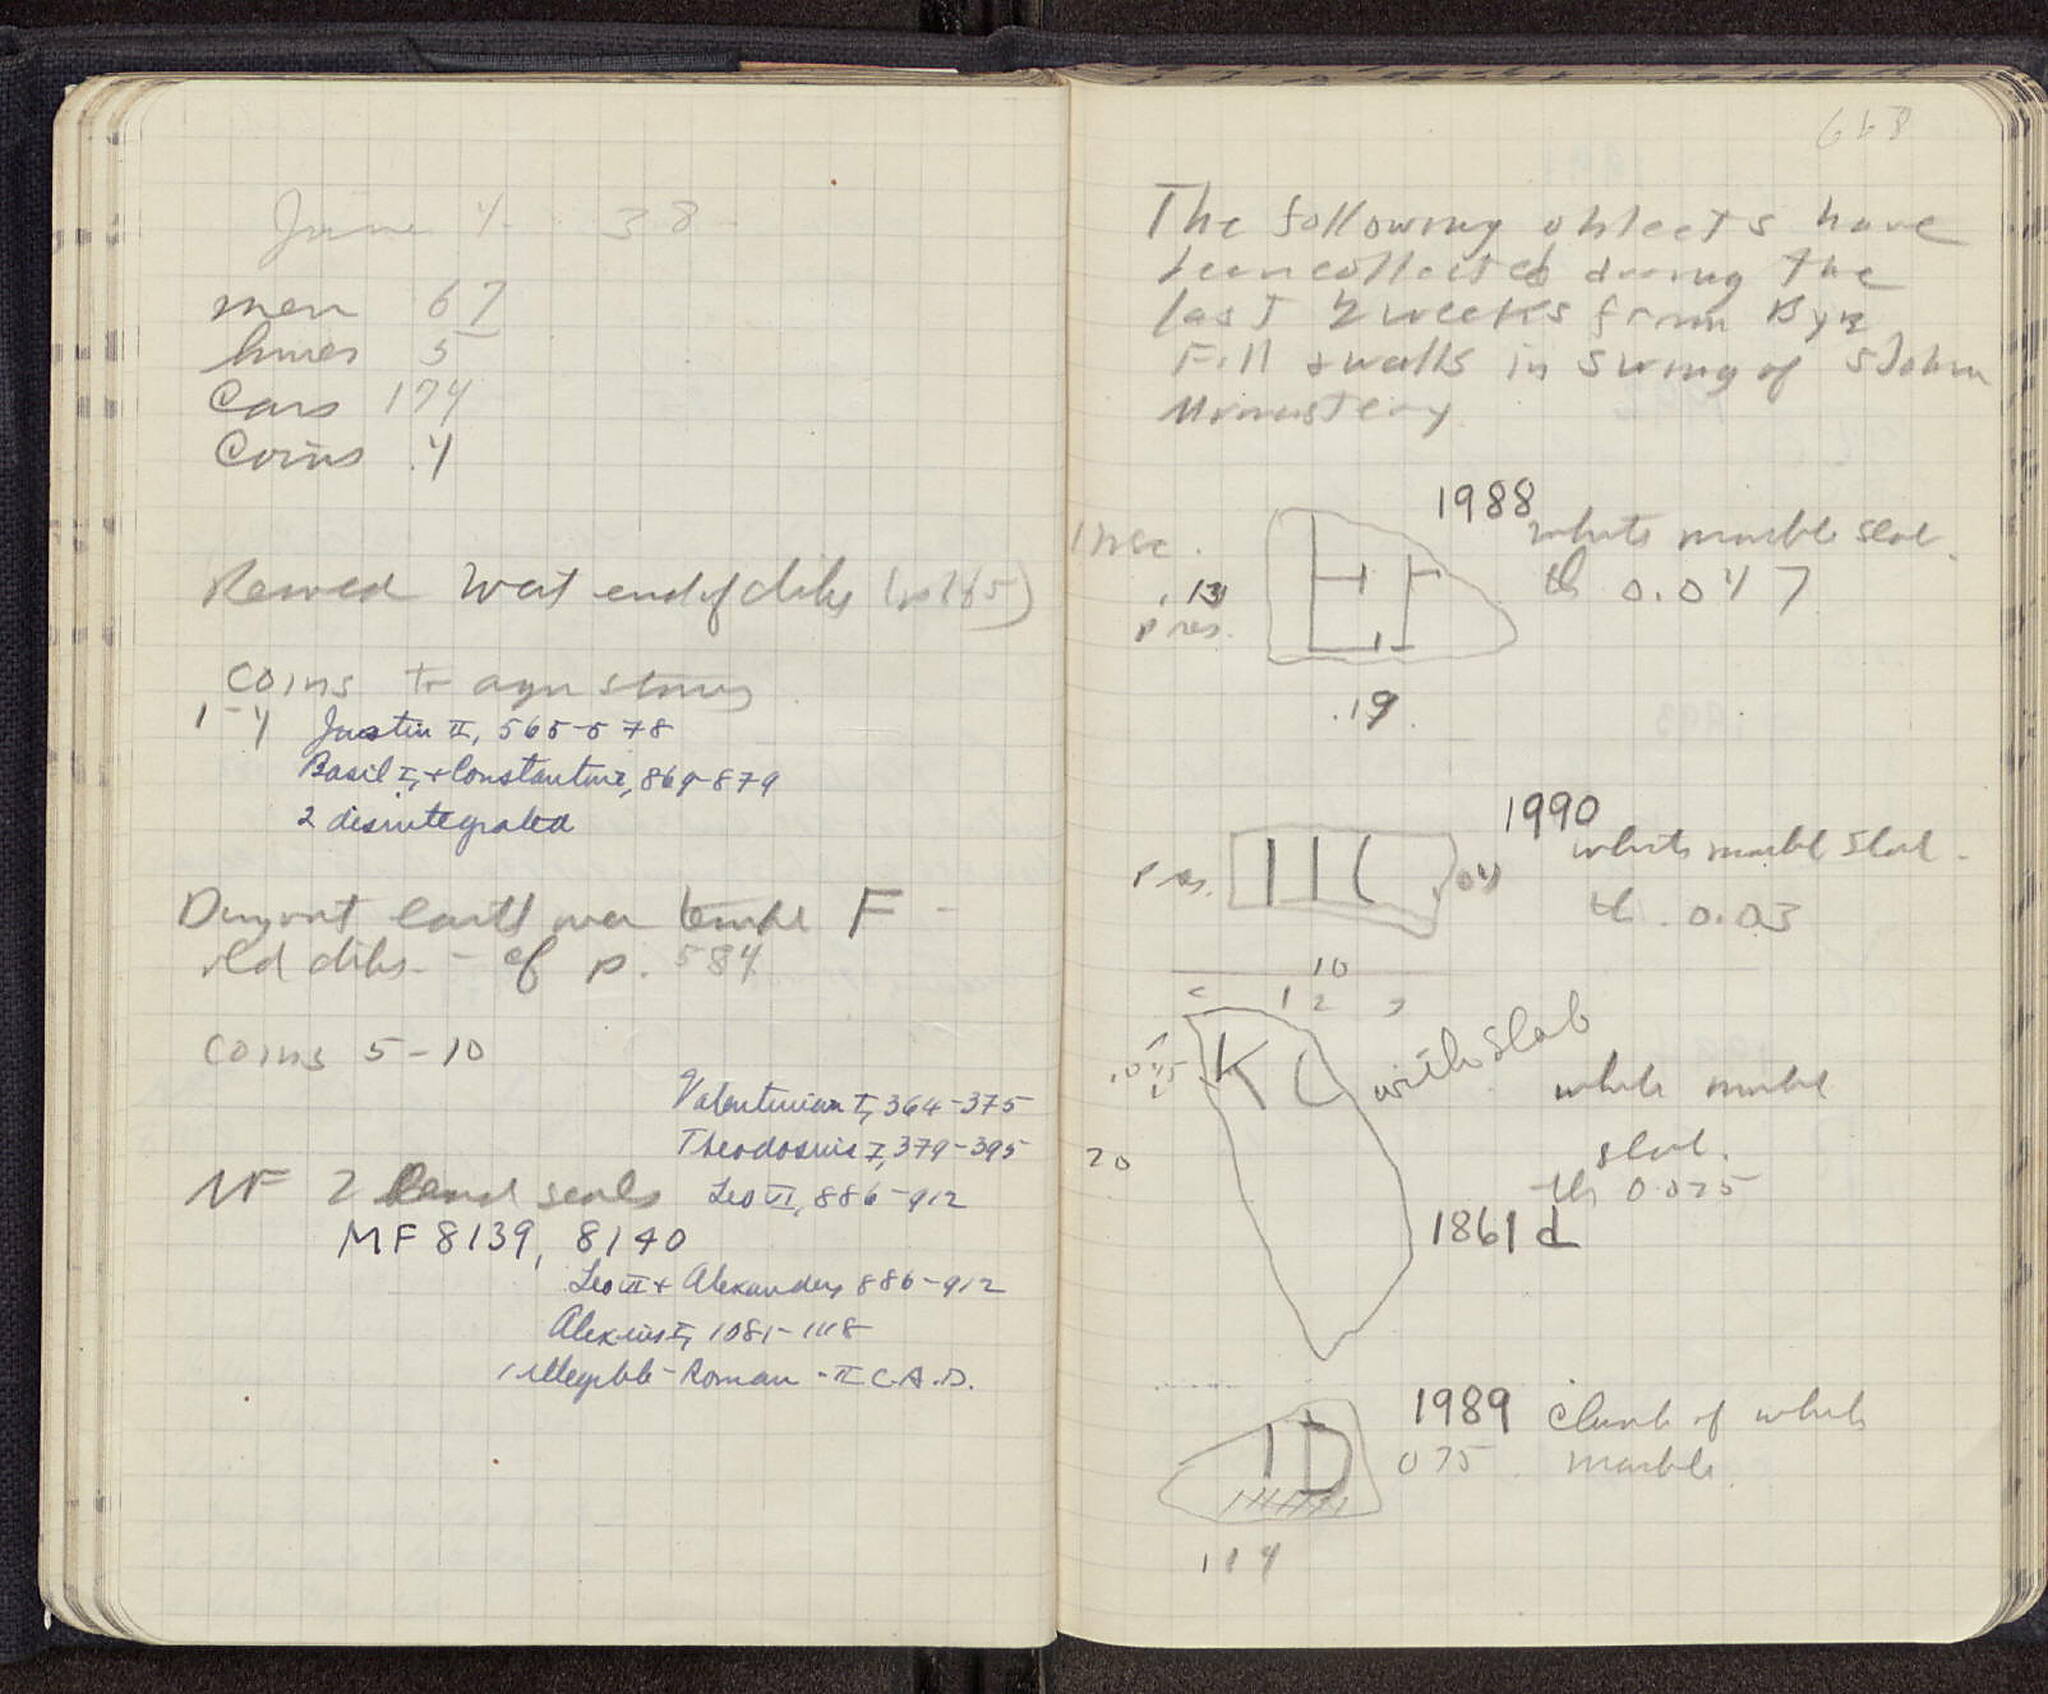 June 4. 38
men 67
hours 5
Cars 174
Coins .4
West end of dike
coins
1-4 Justin II, 565-578
Basil I, + Constantine, 869-879
2 disintegrated
earth over temple F -
old dike - cf p. 584
coins 5-10
Valentinian I, 364-375
Theodosius I, 379-395
MF 2 lead seals Leo VI, 886-912
MF 8139, 8140
Leo VI + Alexander, 886-912
Alexius I, 1081-1118
1 illegible - Roman - II C.A.D.
668
The following objects have
been collected during the
last 2 weeks from Byz
Fill + walls in S wing of S John
Monastery
1988
Insc. EF white marble slab.
.13 th 0.047
pres.
.19
1990
IIC white marble slab.
pres. .04
th. 0.03
10
12
KC with slab
.045 white marble
20 slab.
th 0.025
1861 d
1989 chunk of white
ID 075 marble
114